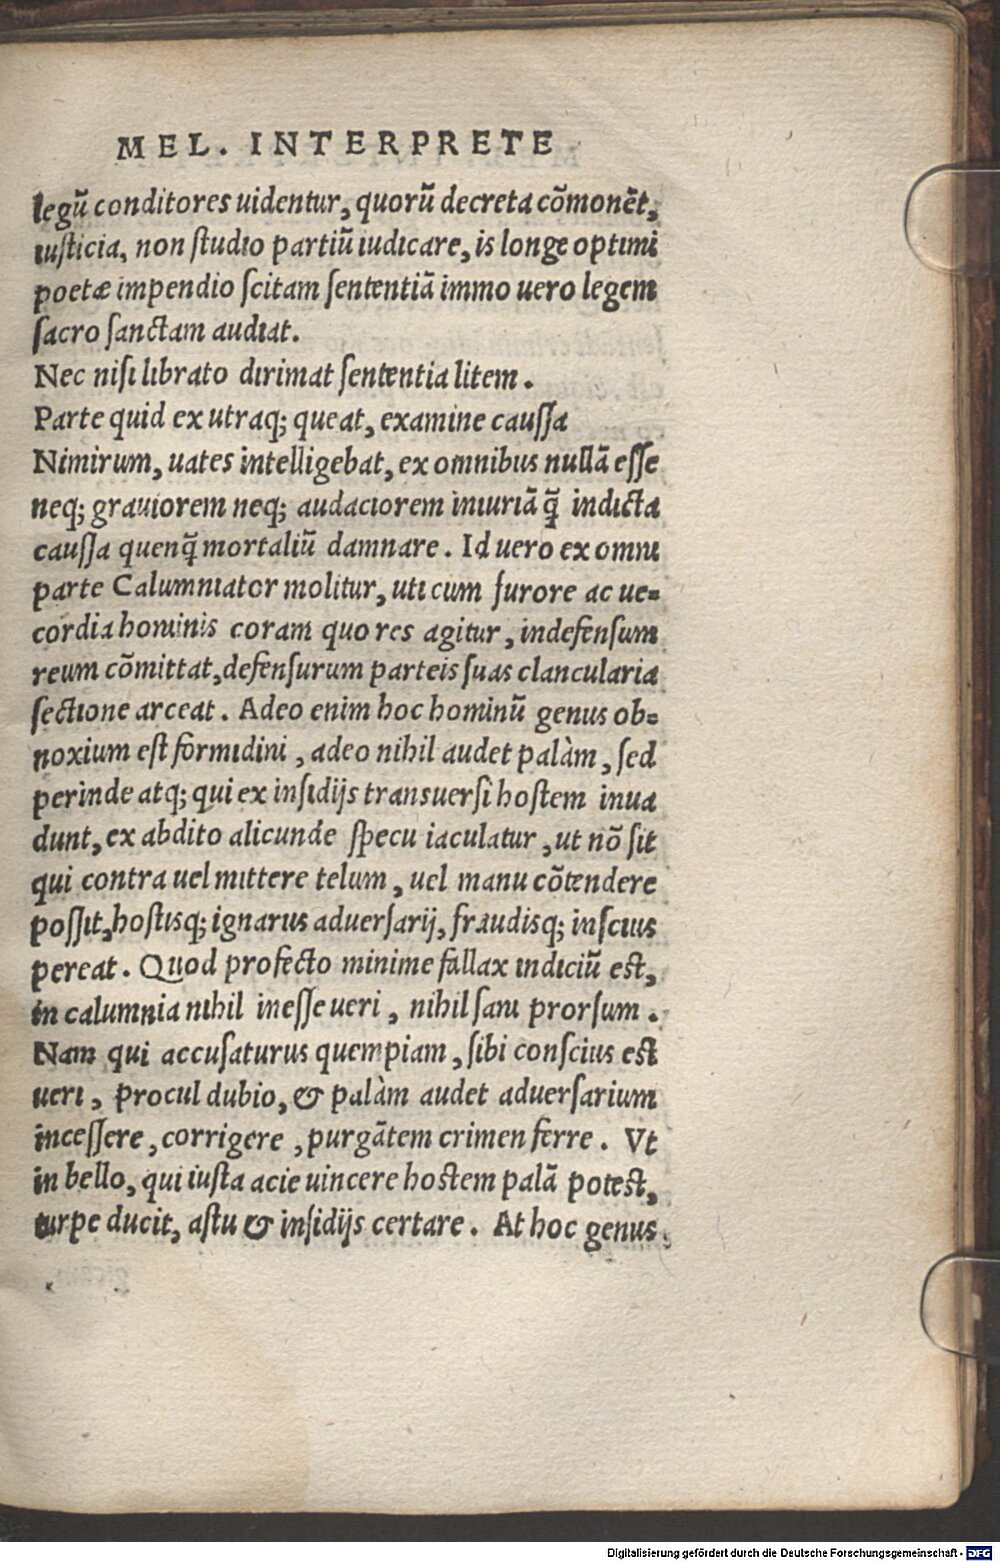 MEL. INTERPRETE
legū conditores uidentur, quorū decreta cōmonẽt,
iusticia, non studio partiū iudicare, is longe optimi
poetæ impendio scitam sententiā immo uero legem
sacro sanctam audiat.
Nec nisi librato dirimat sententia litem.
Parte quid ex utraq; queat, examine caussa
Nimirum, uates intelligebat, ex omnibus nullā esse
neq; grauiorem neq; audaciorem iniuriā q̃ indicta
caussa quenq̃ mortaliū damnare. Id uero ex omni
parte Calumniator molitur, uti cum furore ac ue-
cordia hominis coram quo res agitur, indefensum
reum cōmittat, defensurum parteis suas clancularia
sectione arceat. Adeo enim hoc hominū genus ob-
noxium est formidini, adeo nihil audet palàm, sed
perinde atq; qui ex insidijs transuersi hostem inua
dunt, ex abdito alicunde specu iaculatur, ut nō sit
qui contra uel mittere telum, uel manu cōtendere
possit, hostisq; ignarus aduersarij, fraudisq; inscius
pereat. Quod profecto minime fallax indiciū est,
in calumnia nihil inesse ueri, nihil sani prorsum.
Nam qui accusaturus quempiam, sibi conscius est
ueri, procul dubio, & palàm audet aduersarium
incessere, corrigere, purgātem crimen ferre. Vt
in bello, qui iusta acie uincere hostem palā potest,
turpe ducit, astu & insidijs certare. At hoc genus
Digitalisierung gefördert durch die Deutsche Forschungsgemeinschaft - DFG